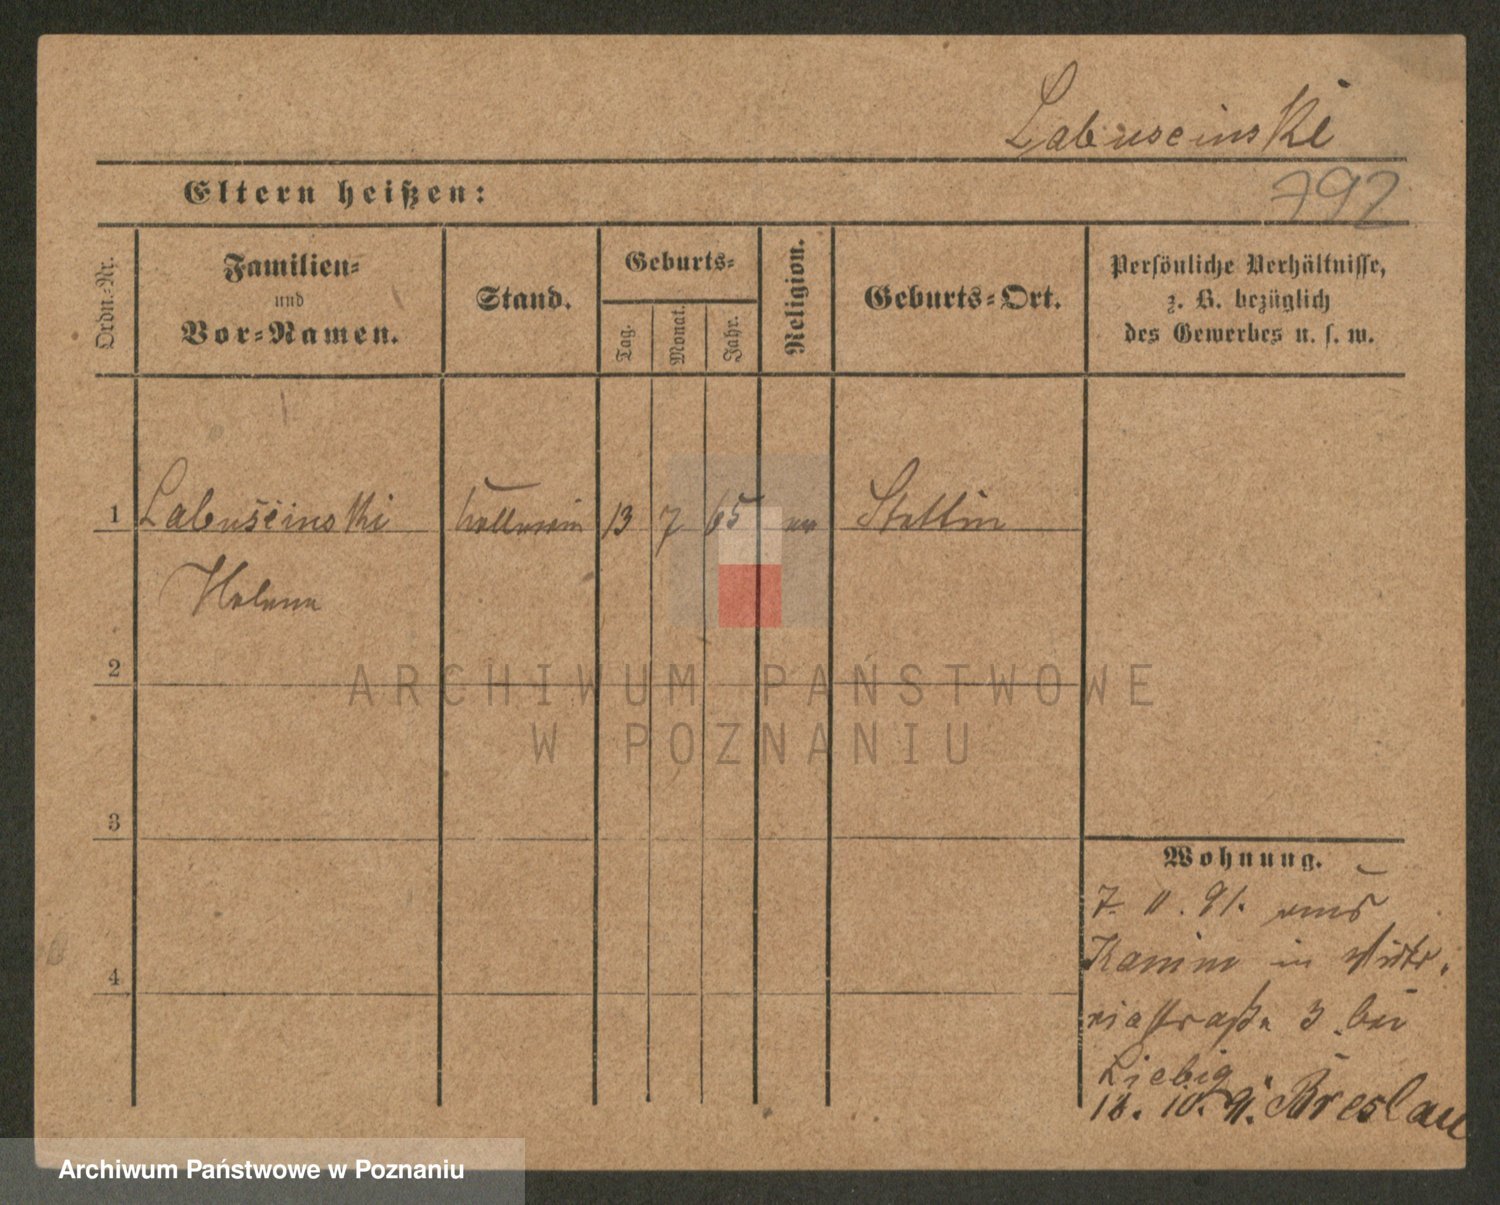 Labuscinski
Eltern heißen:
792
Ordn.-Nr.
Familien-
und
Vor-Namen.
Stand.
Geburts-
Tag.
Monat.
Jahr.
Religion.
Geburts-Ort.
Persönliche Verhältnisse,
z. B. bezüglich
des Gewerbes u. s. w.
1 Labuścinski Kellnerin 13 7 65 Stettin
Helene
2
3
4
Wohnung.
7. 11. 91. aus
Kamin in Victo-
riastraße 3 bei
Liebig
18. 10. 91. Breslau
ARCHIWUM PAŃSTWOWE
W POZNANIU
Archiwum Państwowe w Poznaniu